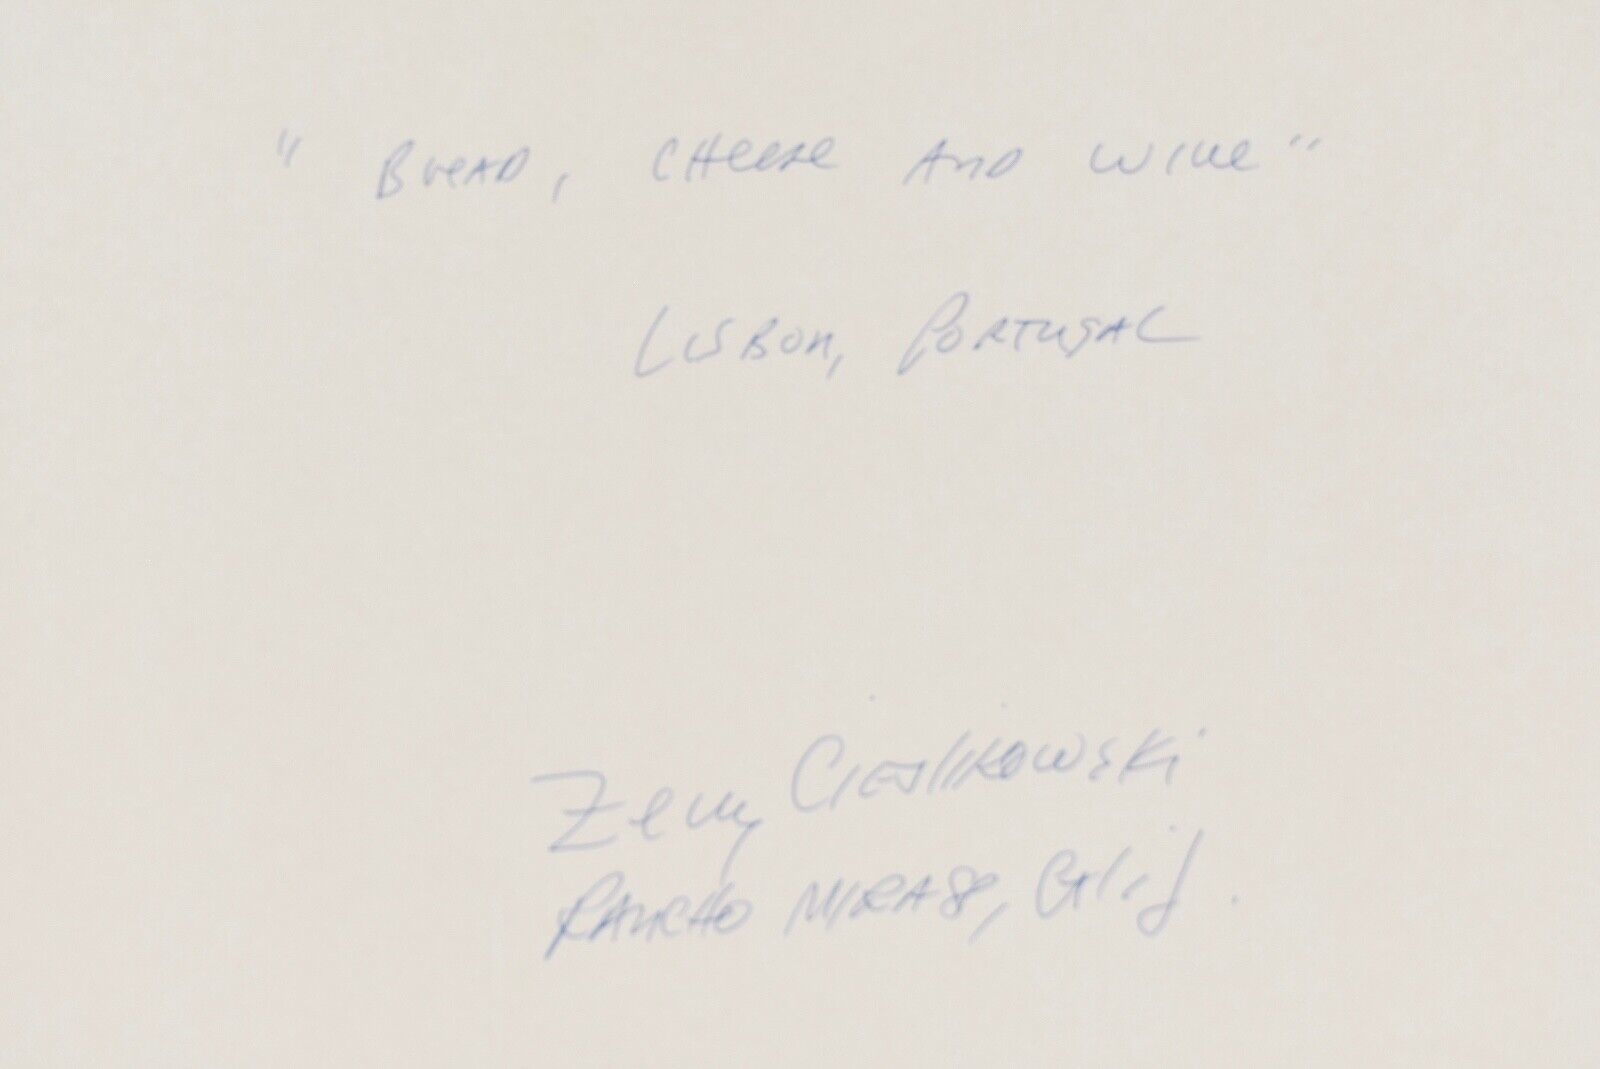 "Bread, Cheese and Wine"
Lisbon, Portugal
Zeny Cieslikowski
Rancho Mirage, Calif.